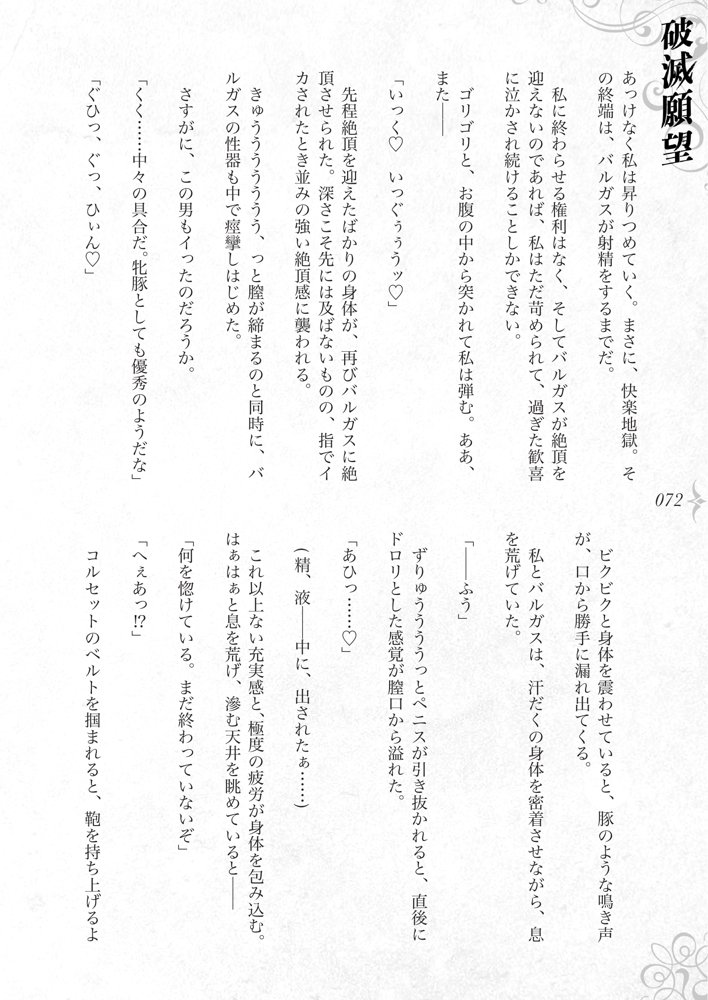 破滅願望
あっけなく私は昇りつめていく。まさに、快楽地獄。そ
の終端は、バルガスが射精をするまでだ。
私に終わらせる権利はなく、そしてバルガスが絶頂を
迎えないのであれば、私はただ苛められて、過ぎた歓喜
に泣かされ続けることしかできない。
ゴリゴリと、お腹の中から突かれて私は弾む。ああ、
また――
「いっく♡　いっぐぅぅうッ♡」
先程絶頂を迎えたばかりの身体が、再びバルガスに絶
頂させられた。深さこそ先には及ばないものの、指でイ
カされたとき並みの強い絶頂感に襲われる。
きゅうううううう、っと膣が締まるのと同時に、バ
ルガスの性器も中で痙攣しはじめた。
さすがに、この男もイったのだろうか。
「くく……中々の具合だ。牝豚としても優秀のようだな」
「ぐひっ、ぐっ、ひぃん♡」
072
ビクビクと身体を震わせていると、豚のような鳴き声
が、口から勝手に漏れ出てくる。
私とバルガスは、汗だくの身体を密着させながら、息
を荒げていた。
「――ふう」
ずりゅうううっとペニスが引き抜かれると、直後に
ドロリとした感覚が膣口から溢れた。
「あひっ……♡」
(精、液――中に、出されたぁ……)
これ以上ない充実感と、極度の疲労が身体を包み込む。
はぁはぁと息を荒げ、滲む天井を眺めていると――
「何を惚けている。まだ終わっていないぞ」
「へぇあっ!?」
コルセットのベルトを掴まれると、鞄を持ち上げるよ